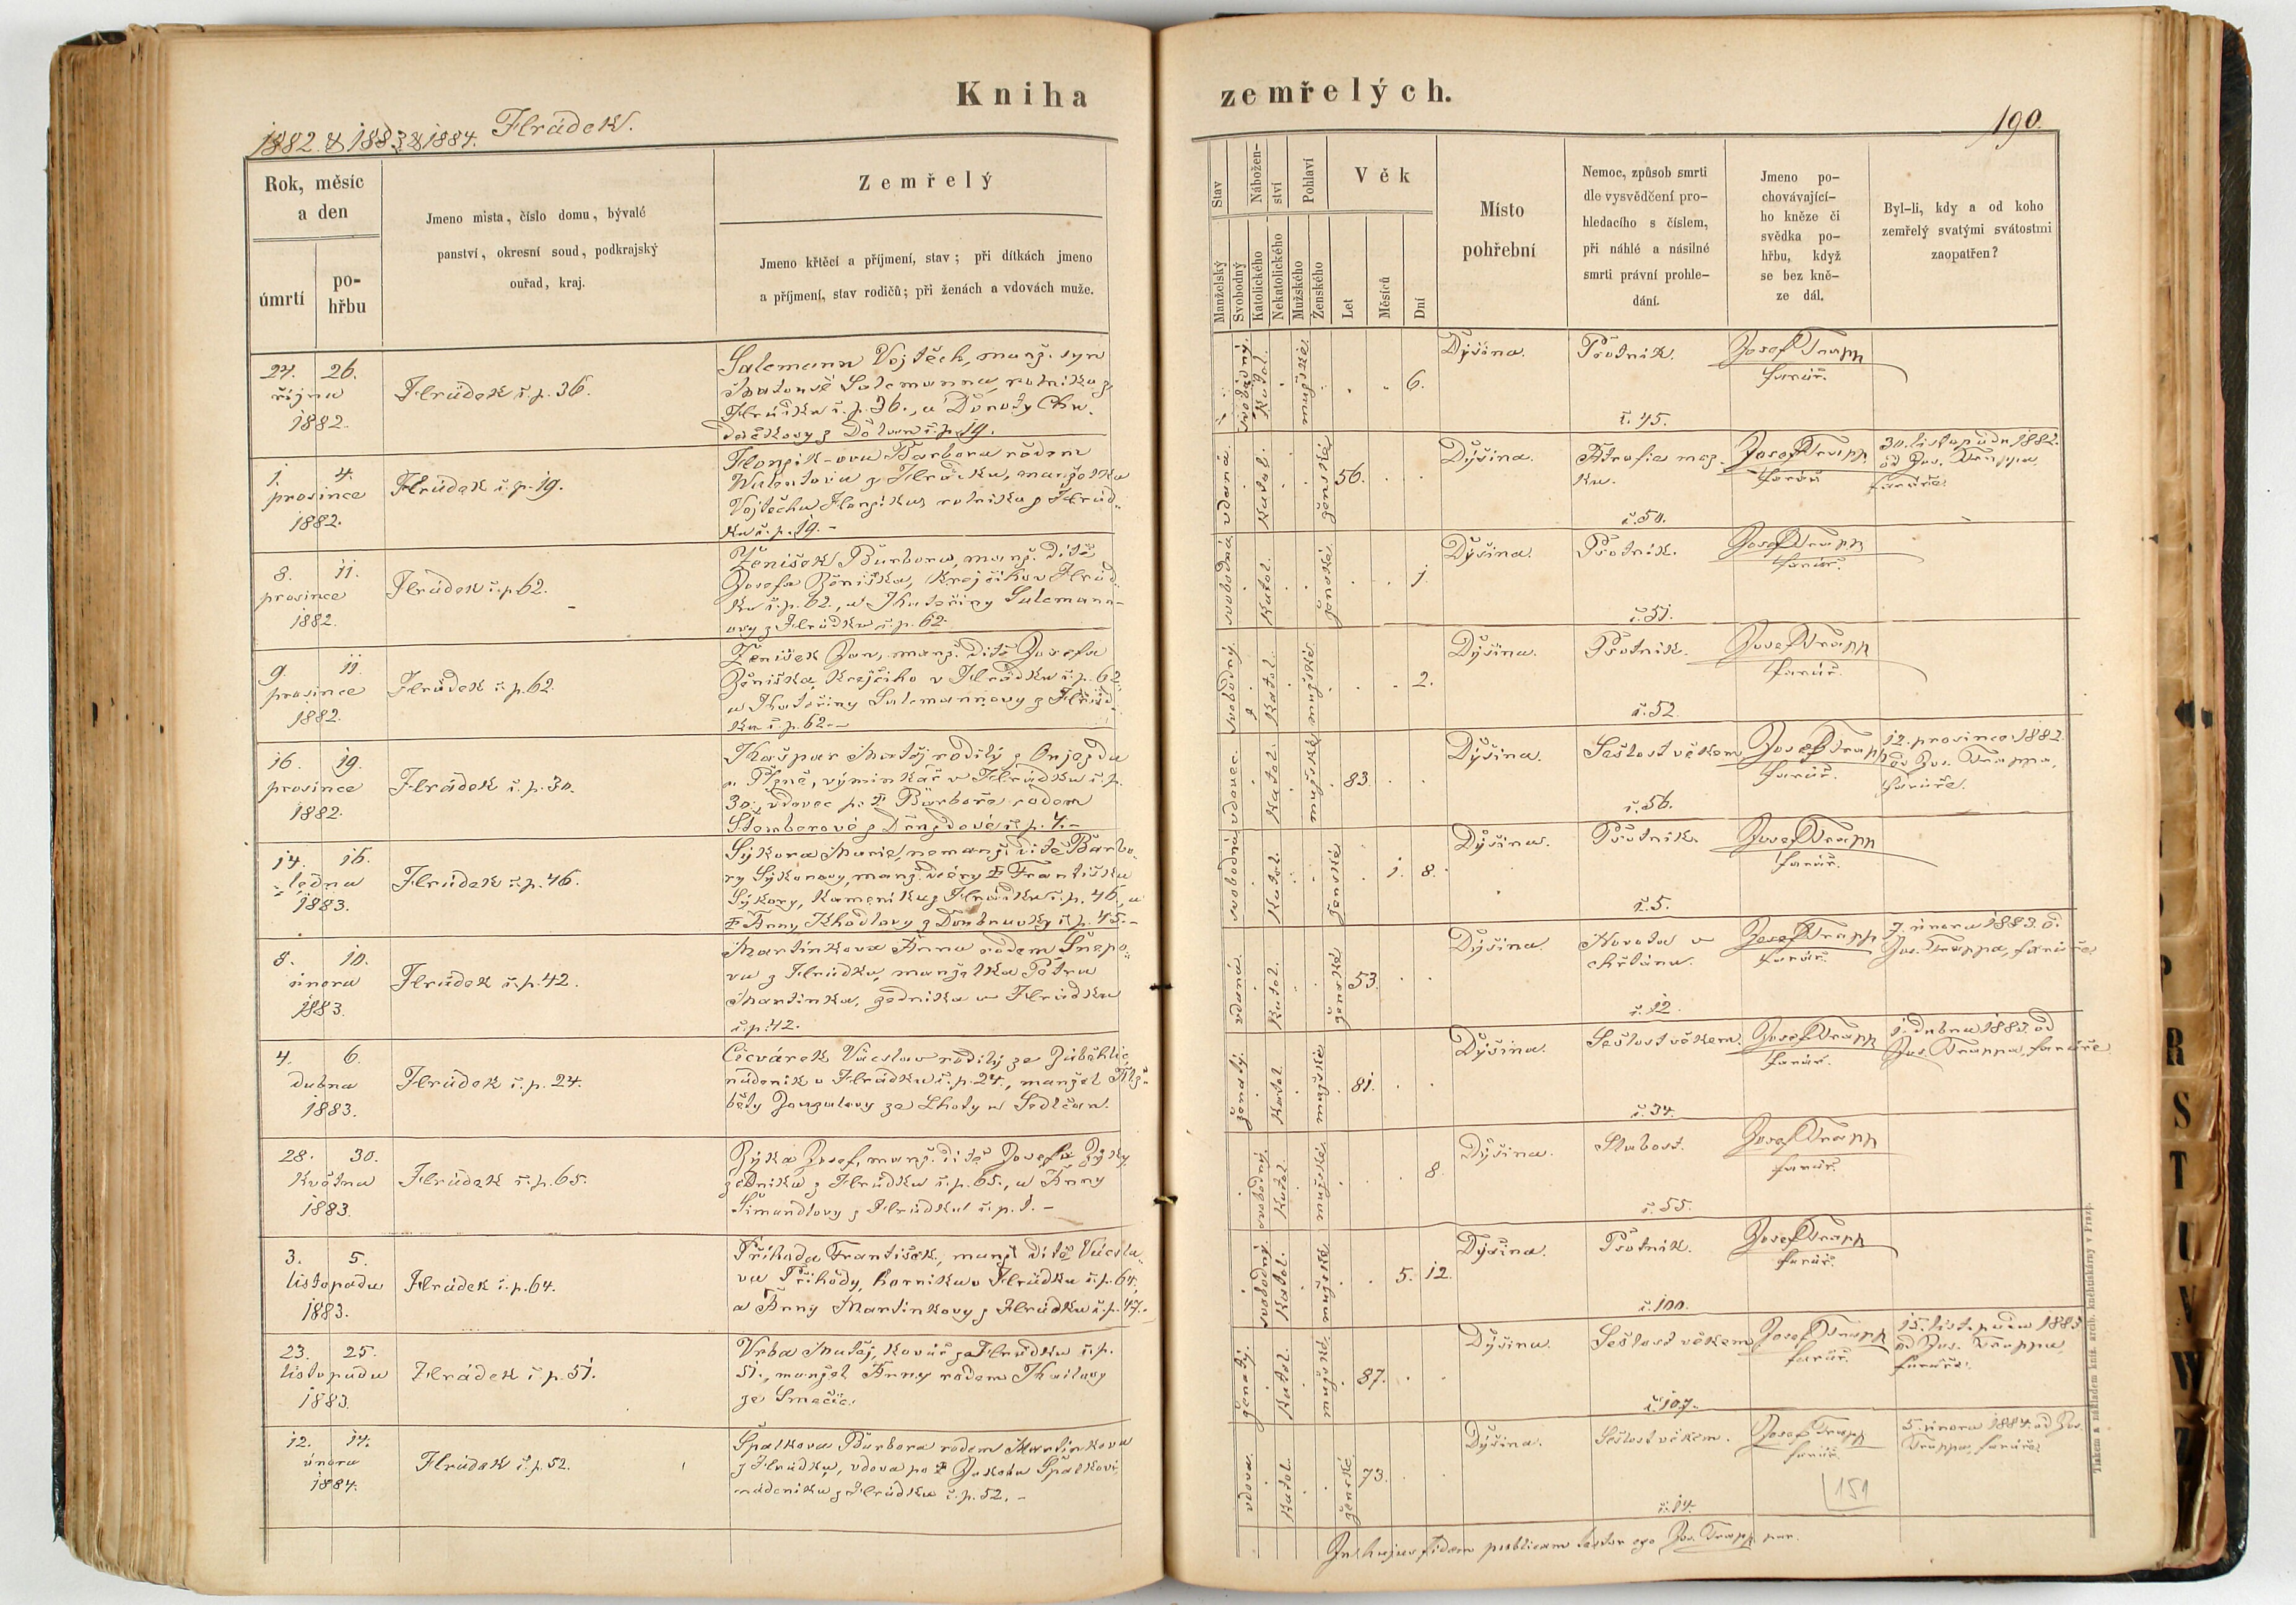 Kniha
zemřelých.
1882. & 1883 & 1884.
Hrádek.
190.
Rok, měsíc
a den
úmrtí
po-
hřbu
Jmeno mista, číslo domu, bývalé
panství, okresní soud, podkrajský
ouřad, kraj.
Zemřelý
Jmeno křtěcí a příjmení, stav; při dítkách jmeno
a příjmení, stav rodičů; při ženách a vdovách muže.
Stav
Manželský
Svobodný
Nábožen-
ství
Katolického
Nekatolického
Pohlaví
Mužského
Ženského
Věk
Let
Měsíců
Dní
Místo
pohřební
Nemoc, způsob smrti
dle vysvědčení pro-
hledacího s číslem,
při náhlé a násilné
smrti právní prohle-
dání.
Jmeno po-
chovávající-
ho kněze či
svědka po-
hřbu, když
se bez kně-
ze dál.
Byl-li, kdy a od koho
zemřelý svatými svátostmi
zaopatřen?
26.
října
1882.
Hrádek č. p. 36.
Salcmann Vojtěch, manž. syn
Salcmanna, rolníka z
Hrádku č. p. 36., a Doroty
č. p. 19.
svobodný.
Katol.
mužské.
6.
Dýšina.
Psotník.
č. 45.
Josef Trapp
farář.
1. 4.
prosince
1882.
Hrádek č. p. 19.
Barbora rodem
z Hrádku, manželka
Vojtěcha rolníka z Hrád-
ku č. p. 19. –
vdaná.
Katol.
ženské
56.
Dýšina.
Atrofia
č. 50.
Josef Trapp
farář
30. listopadu 1882.
od Jos. Trappa,
faráře.
8. 11.
prosince
1882.
Hrádek č. p. 62.
Ženíšek Barbora, manž. dítě
Josefa Ženíška, krejčího v Hrád-
ku č. p. 62., a Kateřiny Salcmann-
ovy z Hrádku č. p. 62.
svobodná
Katol.
ženské.
1.
Dýšina.
Psotník.
č. 51.
Josef Trapp
farář.
9. 11.
prosince
1882.
Hrádek č. p. 62.
Ženíšek Jan, manž. dítě Josefa
Ženíška, krejčího v Hrádku č. p. 62.
a Kateřiny Salcmannovy z Hrád-
ku č. p. 62. –
svobodný.
Katol.
mužské.
2.
Dýšina.
Psotník.
č. 52.
Josef Trapp
farář.
16. 19.
prosince
1882.
Hrádek č. p. 30.
Kašpar Matěj rodilý z
u Plzně, výminkář v Hrádku č. p.
30., vdovec po † Barboře rodem
č. p. 7. –
vdovec.
Katol.
mužské
83.
Dýšina.
Sešlost věkem
č. 56.
Josef Trapp
farář.
12. prosince 1882.
od Jos. Trappa,
faráře.
14. 16.
ledna
1883.
Hrádek č. p. 46.
Sýkora Marie, nemanž. dítě Barbo-
ry Sýkorovy, manž. dcery † Františka
Sýkory, kameníka z Hrádku č. p. 46., a
† Anny z Doubravky č. p. 45. –
svobodná
Katol.
ženské
1. 8.
Dýšina.
Psotník.
č. 5.
Josef Trapp
farář.
8. 10.
února
1883.
Hrádek č. p. 42.
Martínkova Anna rodem
z Hrádku, manželka Petra
Martínka, zedníka v Hrádku
č. p. 42.
vdaná.
Katol.
ženské
53.
Dýšina.
chřtánu.
č. 12.
Josef Trapp
farář.
7. února 1883. od
Jos. Trappa, faráře.
4. 6.
dubna
1883.
Hrádek č. p. 24.
Cicvárek Václav rodilý ze
nádeník v Hrádku č. p. 24., manžel Alž-
běty ze Lhoty u Sedlčan.
ženatý.
Katol.
mužské
81.
Dýšina.
Sešlost věkem.
č. 34.
Josef Trapp
farář.
1. dubna 1883. od
Jos. Trappa, faráře
28. 30.
Května
1883.
Hrádek č. p. 65.
Zýka Josef, manž. dítě Josefa Zýky,
zedníka z Hrádku č. p. 65., a Anny
Šimandlovy z Hrádku č. p. 1. –
svobodný.
Katol.
mužské.
8.
Dýšina.
Slabost.
č. 55.
Josef Trapp
farář.
3. 5.
listopadu
1883.
Hrádek č. p. 64.
Příhoda František, manž. dítě Václa-
va Příhody, horníka v Hrádku č. p. 64.,
a Anny Martínkovy z Hrádku č. p. 47.
svobodný.
Katol.
mužské
5. 12.
Dýšina.
Psotník.
č. 100.
Josef Trapp
farář.
23. 25.
listopadu
1883.
Hrádek č. p. 51.
Vrba Matěj, kovář z Hrádku č. p.
51., manžel Anny rodem
ze Smečic.
ženatý.
Katol.
mužské
87.
Dýšina.
Sešlost věkem
č. 107.
Josef Trapp
farář.
15. listopadu 1883
od Jos. Trappa,
faráře.
12. 14.
února
1884.
Hrádek č. p. 52.
Špalkova Barbora rodem Martínkova
z Hrádku, vdova po † Jakobu Špalkovi,
nádeníku z Hrádku č. p. 52. –
vdova.
Katol.
ženské
73.
Dýšina.
Sešlost věkem.
č. 14.
Josef Trapp
farář.
5. února 1884. od Jos.
Trappa, faráře.
151
In hujus fidem publicam testor ego Jos. Trapp par.
Tiskem a nákladem kníž. arcib. kněhtiskárny v Praze.
R
S
T
U
V
W
Z